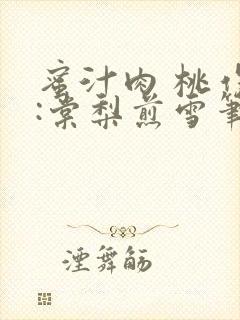 蜜汁肉桃作
:棠梨煎雪筆
湮舞觞